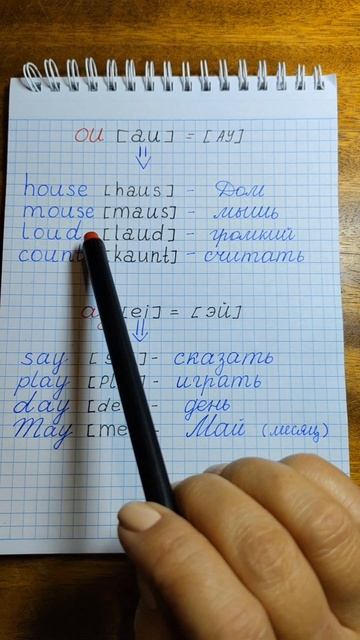 ou [au] = [АУ]
house [haus] - Дом
mouse [maus] - мышь
loud [laud] - громкий
count [kaunt] - считать
[ej] = [эй]
say - сказать
play - играть
day - день
May - Май (месяц)